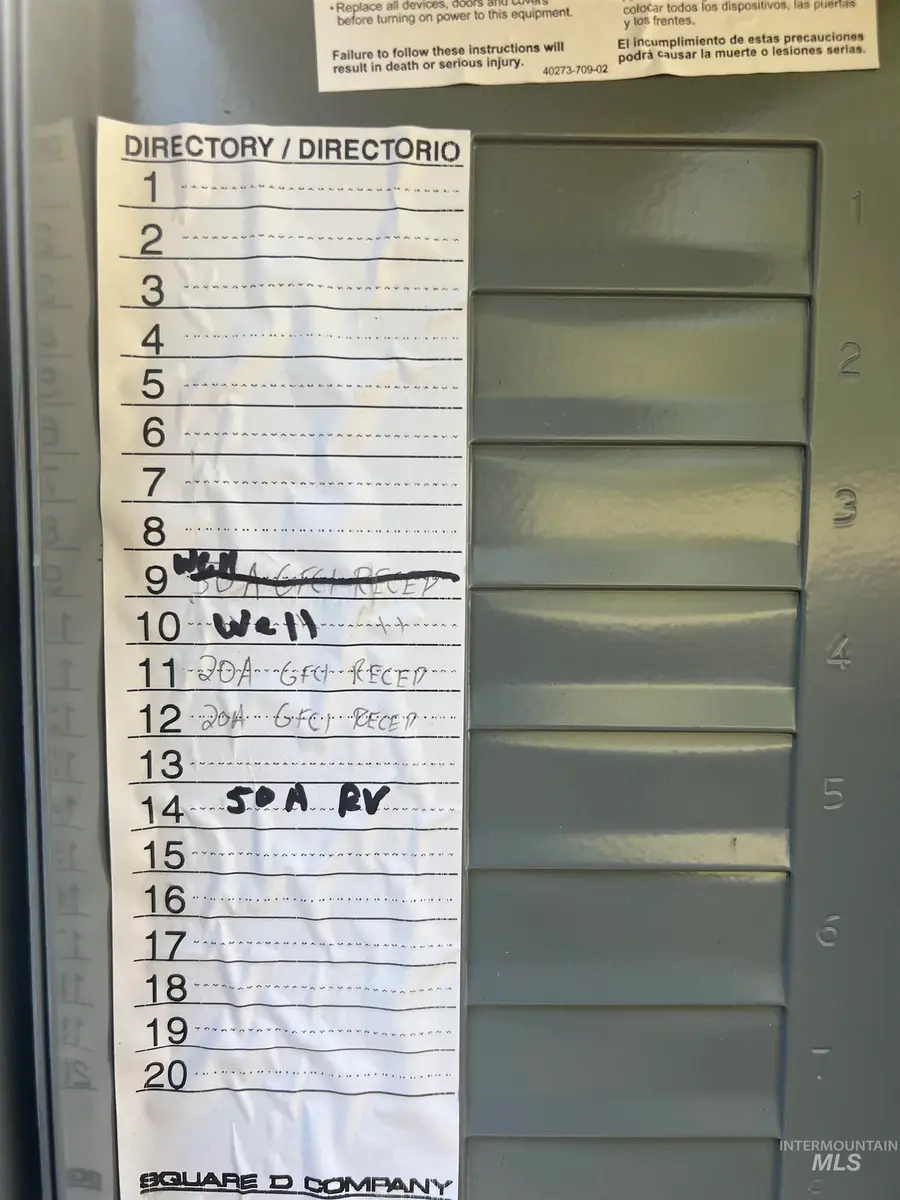 • Replace all devices, doors and covers
before turning on power to this equipment.
Failure to follow these instructions will
result in death or serious injury.
40273-709-02
colocar todos los dispositivos, las puertas
y los frentes.
El incumplimiento de estas precauciones
podrá causar la muerte o lesiones serias.
DIRECTORY / DIRECTORIO
1
2
3
4
5
6
7
8
9 Well 50 A GFCI RECEP
10 Well
11 20A GFCI RECEP
12 20A GFCI RECEP
13
14 50 A RV
15
16
17
18
19
20
SQUARE D COMPANY
1
2
3
4
5
6
INTERMOUNTAIN
MLS